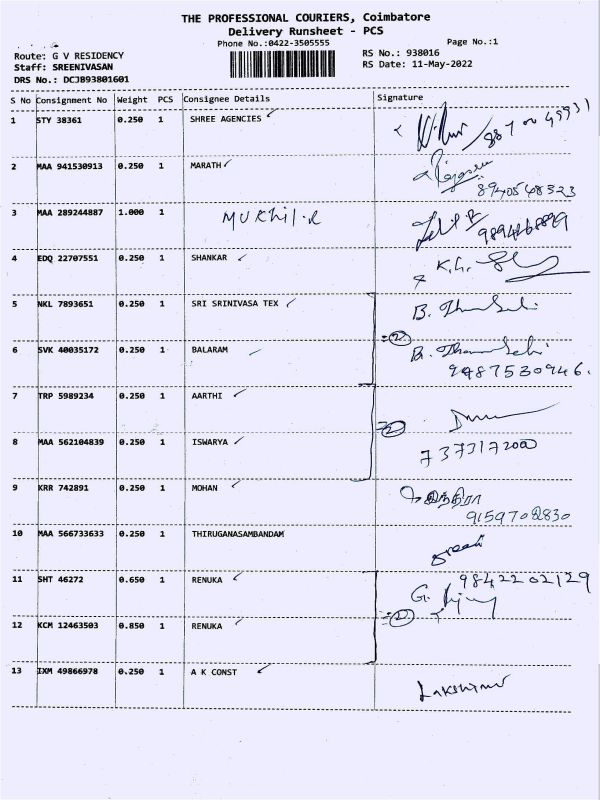 THE PROFESSIONAL COURIERS, Coimbatore
Delivery Runsheet - PCS
Phone No.:0422-3505555
Page No.:1
Route: G V RESIDENCY
RS No.: 938016
Staff: SREENIVASAN
RS Date: 11-May-2022
DRS No.: DCJB93801601
S No Consignment No Weight PCS Consignee Details Signature
1 STY 38361 0.250 1 SHREE AGENCIES
2 MAA 941530913 0.250 1 MARATH
8940568323
3 MAA 289244887 1.000 1 MUKhil.R
4 EDQ 22707551 0.250 1 SHANKAR K.G.
5 NKL 7893651 0.250 1 SRI SRINIVASA TEX B.
2
6 SVK 40035172 0.250 1 BALARAM B.
9487530946.
7 TRP 5989234 0.250 1 AARTHI
2
8 MAA 562104839 0.250 1 ISWARYA 7373172000
9 KRR 742891 0.250 1 MOHAN
9159702830
10 MAA 566733633 0.250 1 THIRUGANASAMBANDAM
11 SHT 46272 0.650 1 RENUKA 9842202129
G.
2
12 KCM 12463503 0.850 1 RENUKA
13 IXM 49866978 0.250 1 A K CONST